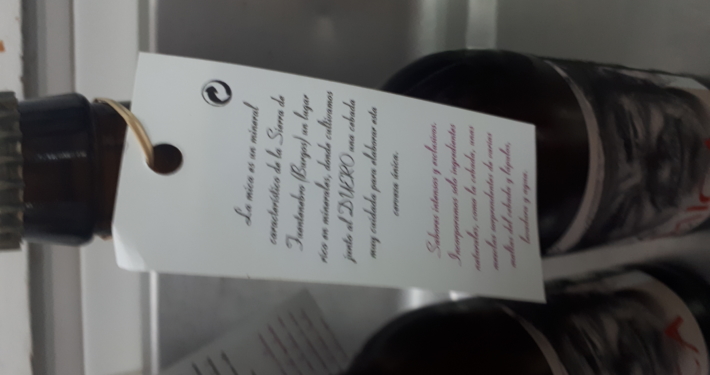 La mica es un mineral
característico de la Sierra de
Fuentenebro (Burgos) un lugar
rico en minerales, donde cultivamos
junto al DUERO una cebada
muy cuidada para elaborar esta
cerveza única.
Sabores intensos y exclusivos.
Incorporamos solo ingredientes
naturales, como la cebada, unas
mezclas emparentadas de varias
maltas del cebada y lúpulos,
levadura y agua.